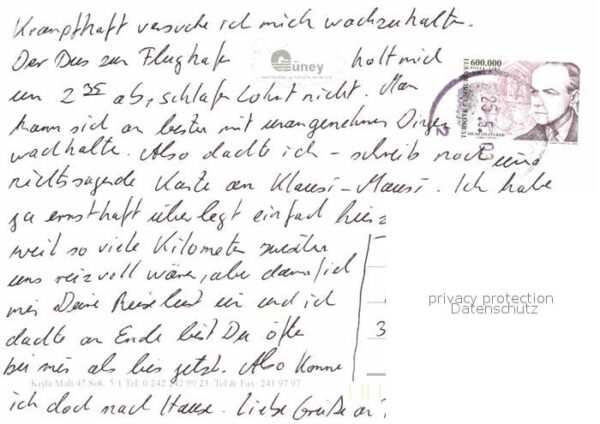 Krampfhaft versuche ich mich wachzuhalten.
Der Bus zum Flughafen holt mich
um 2 35 ab, schlafen lohnt nicht. Man
kann sich am besten mit unangenehmen Dingen
wachhalten. Also dachte ich – schreib noch eine
nichtssagende Karte an Klausi-Mausi. Ich habe
ja ernsthaft überlegt einfach hier z
weil so viele Kilometer zwischen
uns reizvoll wären, aber dann fiel
mir Deine Reiselust ein und ich
dachte am Ende bist Du öfter
bei mir als bis jetzt. Also komme
ich doch nach Hause. Liebe Grüße an
Güney
600.000
TÜRKİYE CUMHURİYETİ
25.5.03
2
3
privacy protection
Datenschutz
Kışla Mah.47 Sok. 5/1 Tel: 0 242 242 99 23 Tel & Fax: 241 97 97